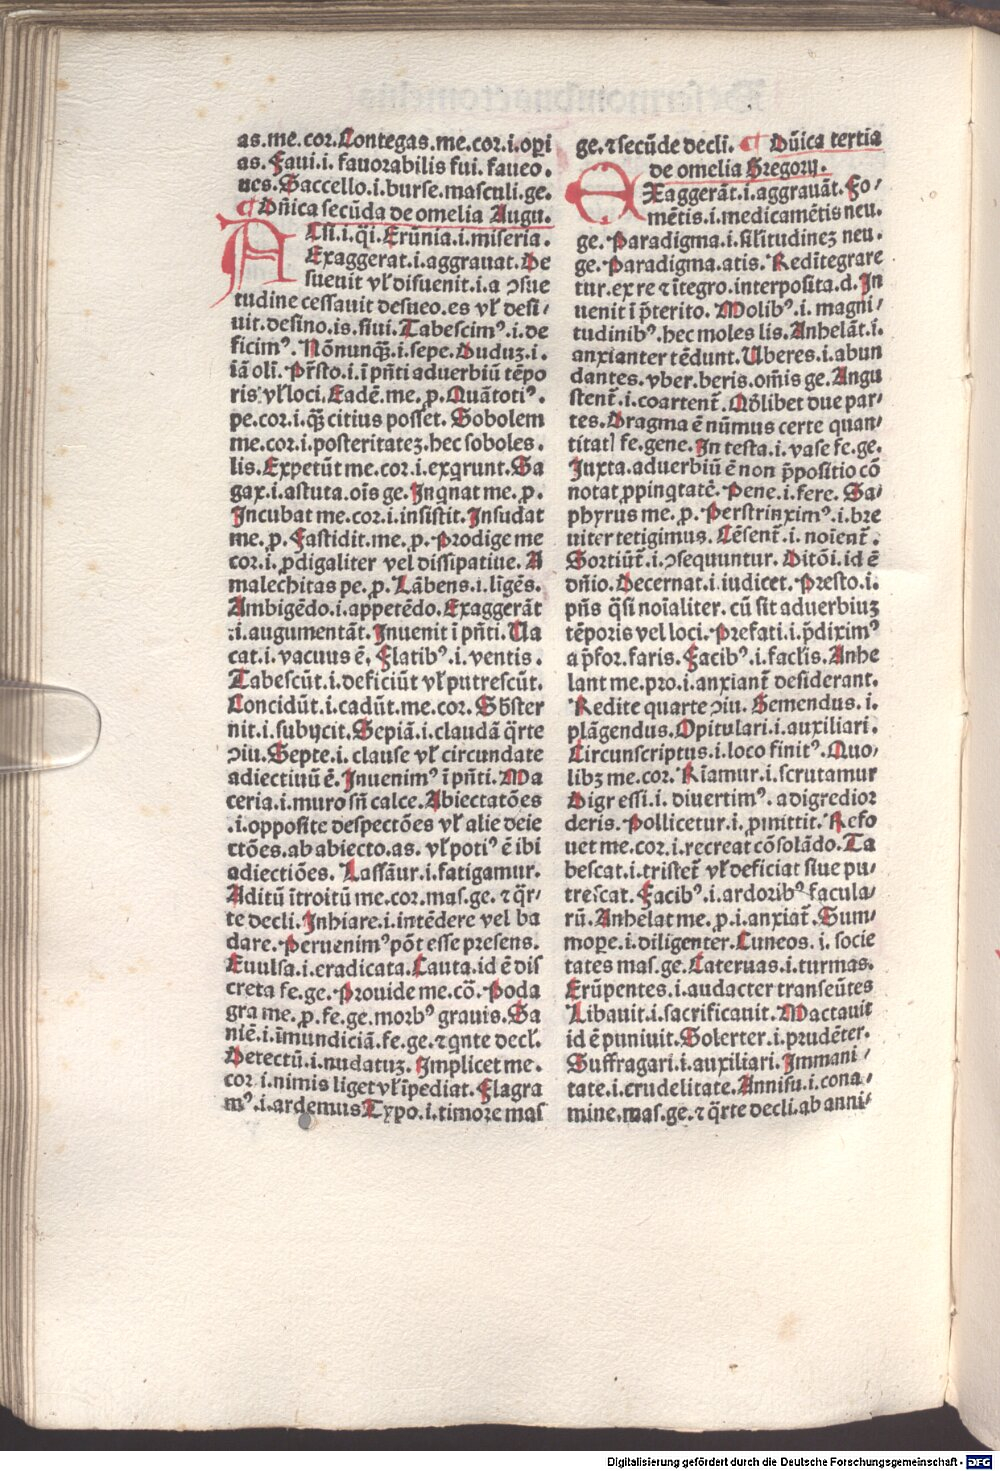 as.me.cor.Contegas.me.cor.i.oꝑi
as. Faui.i. fauorabilis fui. faueo.
ues. Saccello.i.burse.masculi.ge.
¶ Dñica secũda de omelia Augu.
ACsi.i.q̄i.Erũnia.i.miseria.
Exaggerat.i.aggrauat.De
sueuit vꝉ disueuit.i.a ꝯsue
tudine cessauit desueo.es vꝉ desi/
uit.desino.is.siui.Tabescimꝰ.i.de
ficimꝰ. Nõnunqꝫ.i.sepe.Duduꝫ.i.
iã oli.P̃sto.i.i pñti aduerbiũ tẽpo
ris vꝉ loci.Eadẽ.me.ꝓ.Quãtotiꝰ.
pe.cor.i.qꝫ citius posset.Sobolem
me.cor.i.posteritateꝫ.hec soboles.
lis.Expetũt me.cor.i.exqrunt.Sa
gax.i.astuta.oĩs ge.Inqnat me.ꝓ.
Incubat me.cor.i.insistit.Insudat
me.ꝓ.Fastidit.me.ꝓ.Prodige me
cor.i.ꝓdigaliter vel dissipatiue. A
malechitas pe.ꝓ.Lãbens.i.ligẽs.
Ambigẽdo.i.appetẽdo.Exaggerãt
.i.augumentãt.Inuenit i pñti.Ua
cat.i.vacuus ẽ. Flatibꝰ.i.ventis.
Tabescũt.i.deficiũt vꝉ putrescũt.
Concidũt.i.cadũt.me.cor. Sbster
nit.i.subijcit.Sepiã.i.claudã q̄rte
ꝯiu.Septe.i.clause vꝉ circundate
adiectiuũ ẽ.Inuenimꝰ i pñti.Ma
ceria.i.muro sñ calce.Abiectatões
.i.opposite despectões vꝉ alie deie
ctões.ab abiecto.as.vꝉ potiꝰ ẽ ibi
adiectiões. Lassãur.i.fatigamur.
Aditũ ĩtroitũ me.cor.mas.ge.⁊ q̄r-
te decli.Inhiare.i.intẽdere vel ba
dare.Peruenimꝰ põt esse presens.
Euulsa.i.eradicata.Cauta.id ẽ dis
creta fe.ge.Prouide me.cõ.Poda
gra me.ꝓ.fe.ge.morbꝰ grauis.Sa
niẽ.i.ĩmundiciã.fe.ge.⁊ qnte decꝉ.
Detectũ.i.nudatuꝫ.Implicet me.
cor.i.nimis liget vꝉ ĩpediat.Flagra
mꝰ.i.ardemus.Typo.i.timore mas
ge.⁊ secũde decli. ¶ Dũica tertia
de omelia Gregorij.
EXaggerãt.i.aggrauãt.Fo/
mẽtis.i.medicamẽtis neu.
ge.Paradigma.i.siꝉitudineꝫ neu.
ge.Paradigma.atis. Redĩtegrare
tur.ex re ⁊ ĩtegro.interposita.d.In
uenit i p̃terito. Molibꝰ.i.magni/
tudinibꝰ.hec moles lis.Anhelãt.i.
anxianter tẽdunt.Uberes.i.abun
dantes.vber.beris.oĩs ge.Angu
stent̃.i.coartent̃.Qd̃libet due par/
tes.Dragma ẽ nũmus certe quan/
titatꝭ fe.gene.In testa.i.vase fe.ge.
Juxta.aduerbiũ ẽ non p̃positio cõ
notat ꝓpinqtatẽ.Pene.i.fere. Sa/
phyrus me.ꝓ.Perstrinximꝰ.i.bre
uiter tetigimus.Cẽsent̃.i.noĩent̃.
Sortiũt̃.i.ꝯsequuntur.Ditõi.id ẽ
dñio.Decernat.i.iudicet.Presto.i.
pñs q̄si noĩaliter.cũ sit aduerbiuꝫ
tẽporis vel loci.Prefati.i.p̃diximꝰ
a p̃for.faris.Facibꝰ.i.faclis.Anhe
lant me.pro.i.anxiant̃ desiderant.
Redite quarte ꝯiu. Gemendus.i.
plãgendus.Opitulari.i.auxiliari.
Circunscriptus.i.loco finitꝰ.Quo/
libꝫ me.cor. Rĩamur.i.scrutamur
Digressi.i. diuertimꝰ. a digredior
deris.Pollicetur.i.ꝓmittit. Refo
uet me.cor.i.recreat cõsolãdo.Ta
bescat.i.tristet̃ vꝉ deficiat siue pu/
trescat. Facibꝰ.i.ardoribꝰ facula/
rũ.Anhelat me.ꝓ.i.anxiat̃.Sum/
moꝑe.i.diligenter.Cuneos.i.socie
tates mas.ge.Cateruas.i.turmas.
Erũpentes.i.audacter transeũtes
Libauit.i.sacrificauit.Mactauit
id ẽ puniuit.Solerter.i.prudẽter.
Suffragari.i.auxiliari.Immani/
tate.i.crudelitate.Annisu.i.cona/
mine.mas.ge.⁊ q̄rte decli.ab anni/
Digitalisierung gefördert durch die Deutsche Forschungsgemeinschaft - DFG